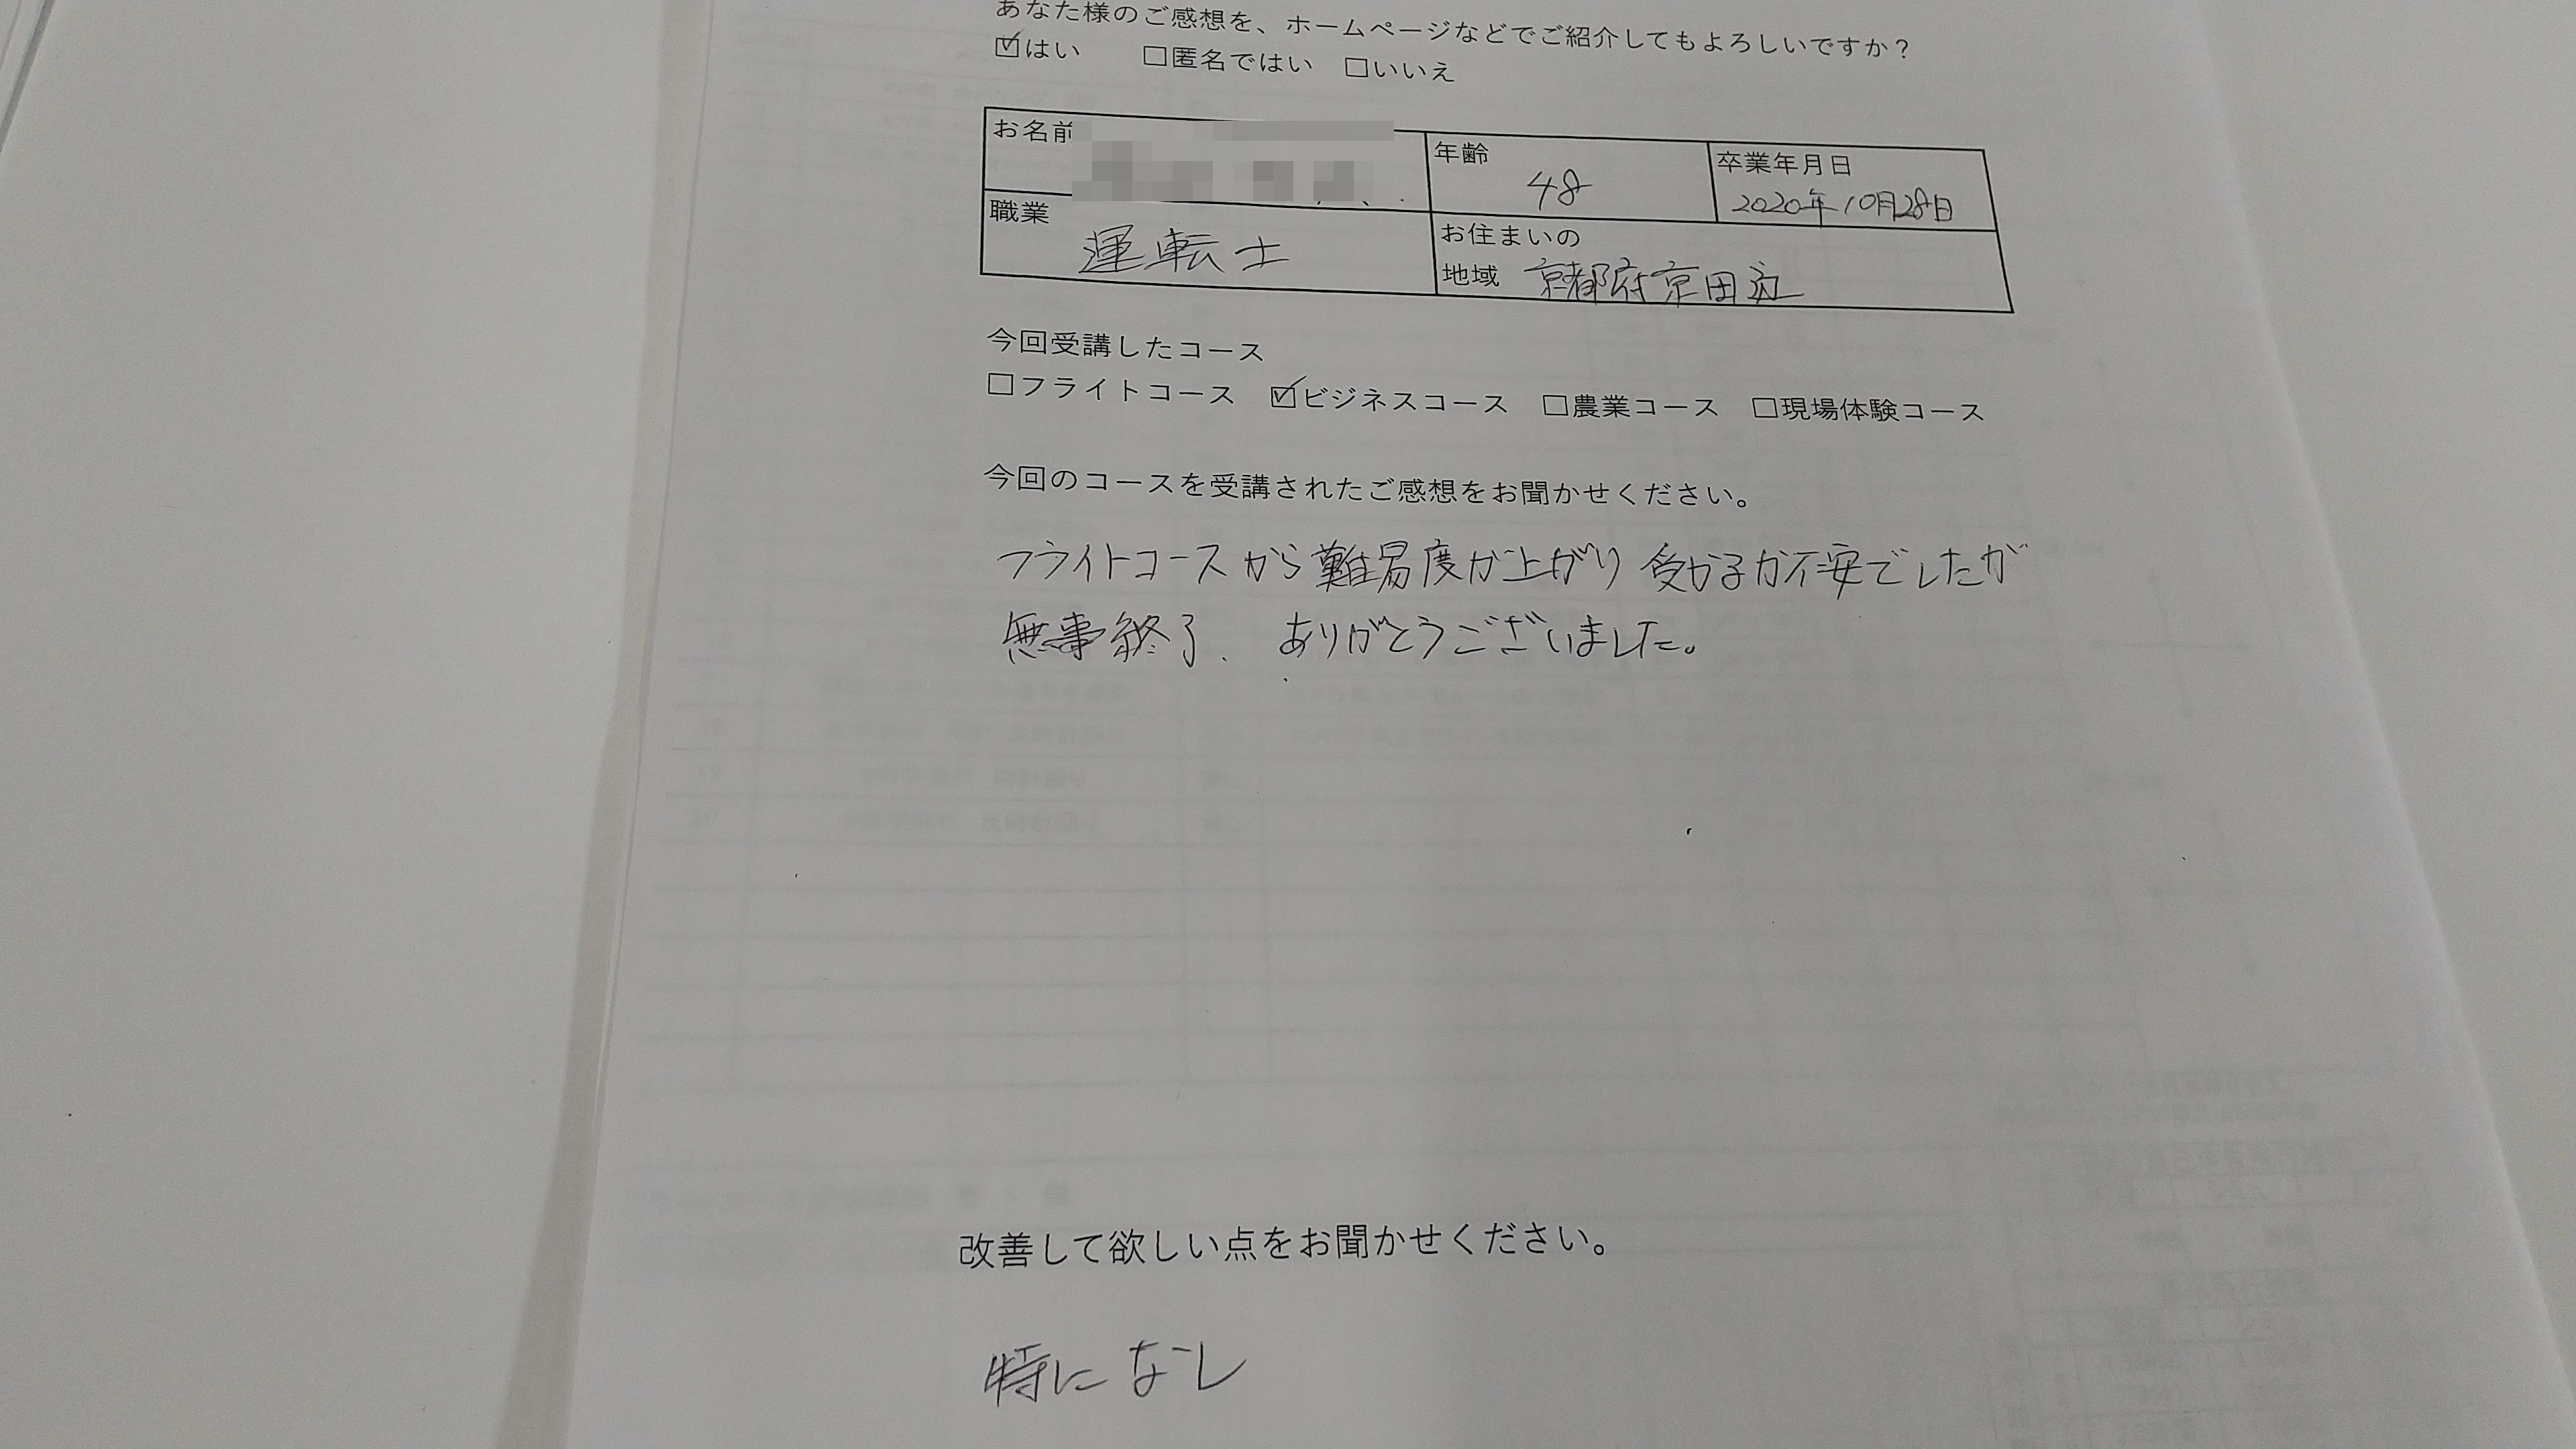 あなた様のご感想を、ホームページなどでご紹介してもよろしいですか？
☑はい □匿名ではい □いいえ
お名前
年齢 48
卒業年月日 2020年10月28日
職業 運転士
お住まいの地域 京都府京田辺
今回受講したコース
□フライトコース ☑ビジネスコース □農業コース □現場体験コース
今回のコースを受講されたご感想をお聞かせください。
フライトコースから難易度が上がり 受かるか不安でしたが
無事終了、ありがとうございました。
改善して欲しい点をお聞かせください。
特になし